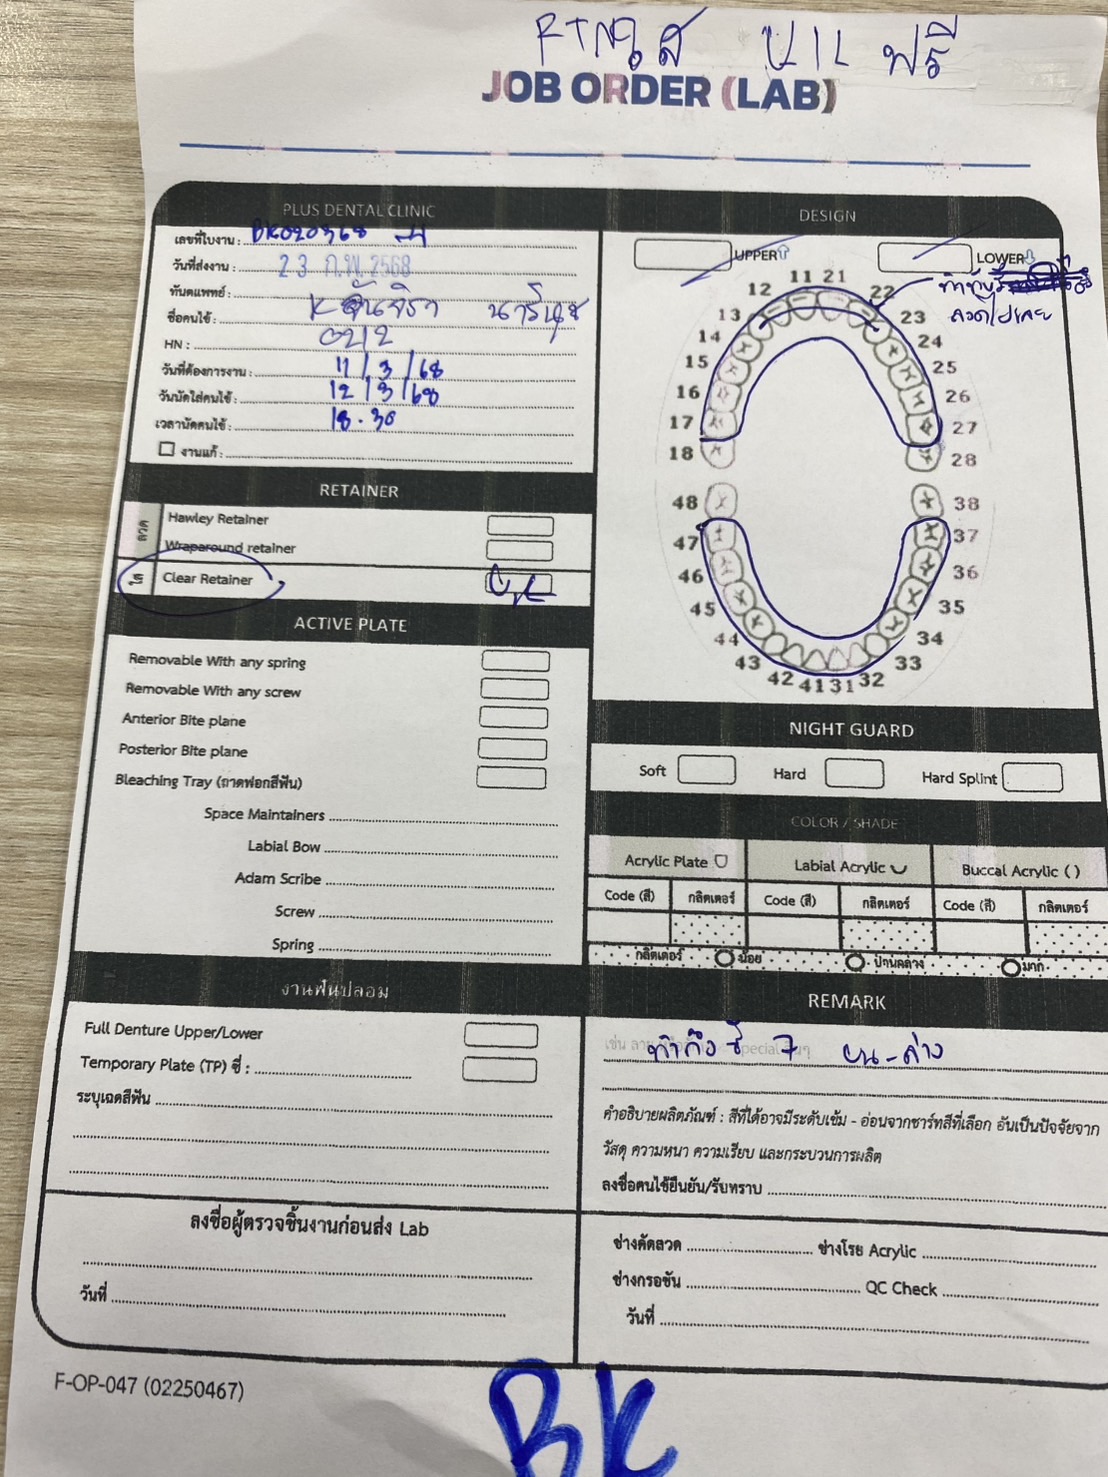 RTNใส U/L ฟรี
JOB ORDER (LAB)
PLUS DENTAL CLINIC
เลขที่ใบงาน : BK020368 -4
วันที่ส่งงาน : 23 ก.พ. 2568
ทันตแพทย์ :
ชื่อคนไข้ : K จันจิรา
HN : 0212
วันที่ต้องการงาน : 11/3/68
วันนัดใส่คนไข้ : 12/3/68
เวลานัดคนไข้ : 18.30
งานแก้ :
RETAINER
ลวด
Hawley Retainer
Wraparound retainer
ใส
Clear Retainer U/L
ACTIVE PLATE
Removable With any spring
Removable With any screw
Anterior Bite plane
Posterior Bite plane
Bleaching Tray (ถาดฟอกสีฟัน)
Space Maintainers
Labial Bow
Adam Scribe
Screw
Spring
งานฟันปลอม
Full Denture Upper/Lower
Temporary Plate (TP) ซี่ :
ระบุเฉดสีฟัน
ลงชื่อผู้ตรวจชิ้นงานก่อนส่ง Lab
วันที่
DESIGN
UPPER
LOWER
ทำทับ
ลวดไปเลย
11 21
12 22
13 23
14 24
15 25
16 26
17 27
18 28
48 38
47 37
46 36
45 35
44 34
43 33
42 41 31 32
NIGHT GUARD
Soft Hard Hard Splint
COLOR / SHADE
Acrylic Plate Labial Acrylic Buccal Acrylic ( )
Code (สี) กลิตเตอร์ Code (สี) กลิตเตอร์ Code (สี) กลิตเตอร์
กลิตเตอร์ น้อย ปานกลาง มาก
REMARK
ทำถึงซี่ 7 บน-ล่าง
คำอธิบายผลิตภัณฑ์ : สีที่ได้อาจมีระดับเข้ม - อ่อนจากชาร์ทสีที่เลือก อันเป็นปัจจัยจาก
วัสดุ ความหนา ความเรียบ และกระบวนการผลิต
ลงชื่อคนไข้ยืนยัน/รับทราบ
ช่างดัดลวด ช่างโรย Acrylic
ช่างกรอขัน QC Check
วันที่
F-OP-047 (02250467)
BK